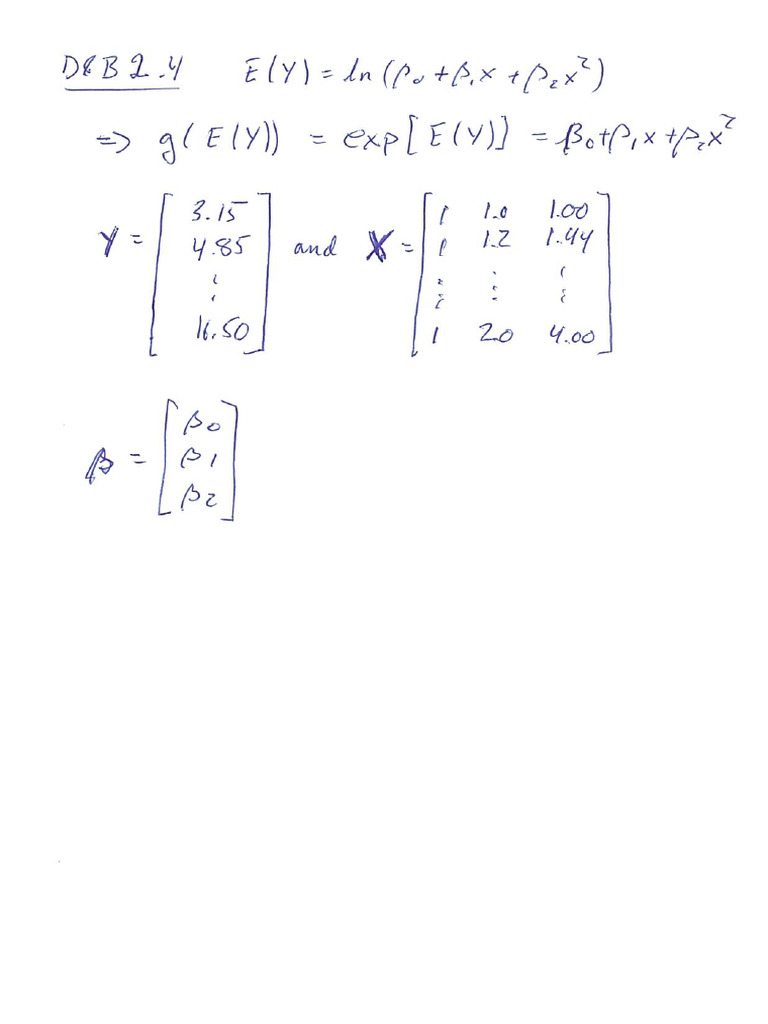 D&B 2.4 E(Y) = ln(β₀ + β₁x + β₂x²)
=> g(E(Y)) = exp[E(Y)] = β₀+β₁x+β₂x²
Y = [3.15 4.85 ⋮ 16.50] and X = [1 1.0 1.00
1 1.2 1.44
⋮ ⋮ ⋮
1 2.0 4.00]
β = [β0
β1
β2]